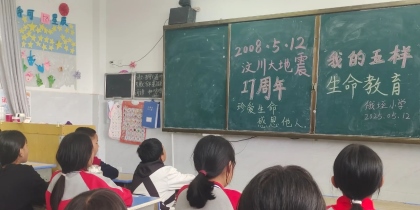 2008·5·12
汶川大地震
17周年
珍爱生命
感恩他人
我的五样
生命教育
2025.05.12